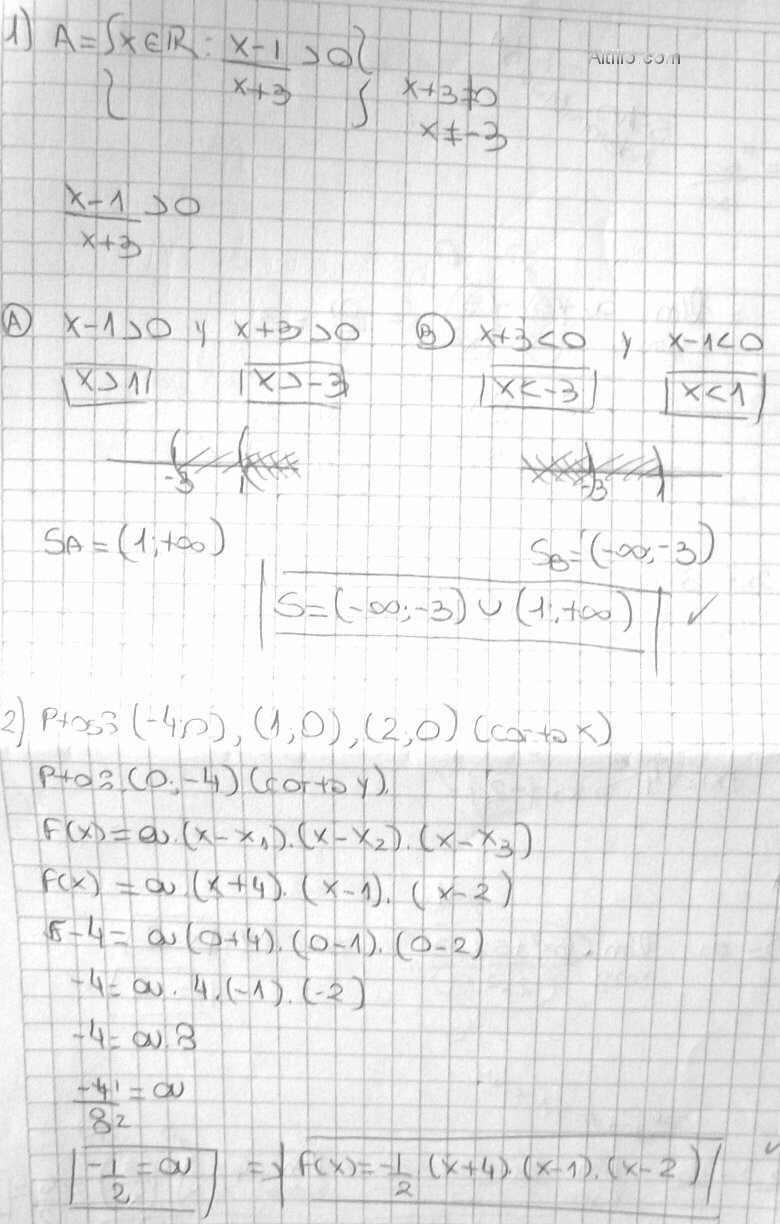 1) A = {x ∈ ℝ : (x-1)/(x+3) > 0}
Altillo.com
x+3≠0
x≠-3
(x-1)/(x+3) > 0
Ⓐ x-1>0 y x+3>0 Ⓑ x+3<0 y x-1<0
x>1 x>-3 x<-3 x<1
-3 1 -3 1
SA = (1;+∞) SB = (-∞;-3)
S = (-∞;-3) ∪ (1;+∞) ✓
2) Ptos: (-4;0), (1;0), (2,0) (corto x)
Pto: (0;-4) (corto y).
F(x) = a.(x-x₁).(x-x₂).(x-x₃)
F(x) = a.(x+4).(x-1).(x-2)
-4 = a(0+4).(0-1).(0-2)
-4 = a. 4.(-1).(-2)
-4 = a.8
-4¹/8₂ = a
-1/2 = a => F(x) = -1/2 (x+4).(x-1).(x-2) ✓